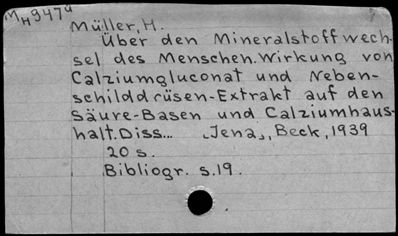 MH9474
Müller, H.
Über den Mineralstoffwech-
sel des Menschen. Wirkung von
Calziumgluconat und Neben-
schilddrüsen-Extrakt auf den
Säure-Basen und Calziumhaus-
halt. Diss... Jena, Beck, 1939
20 s.
Bibliogr. s.19.